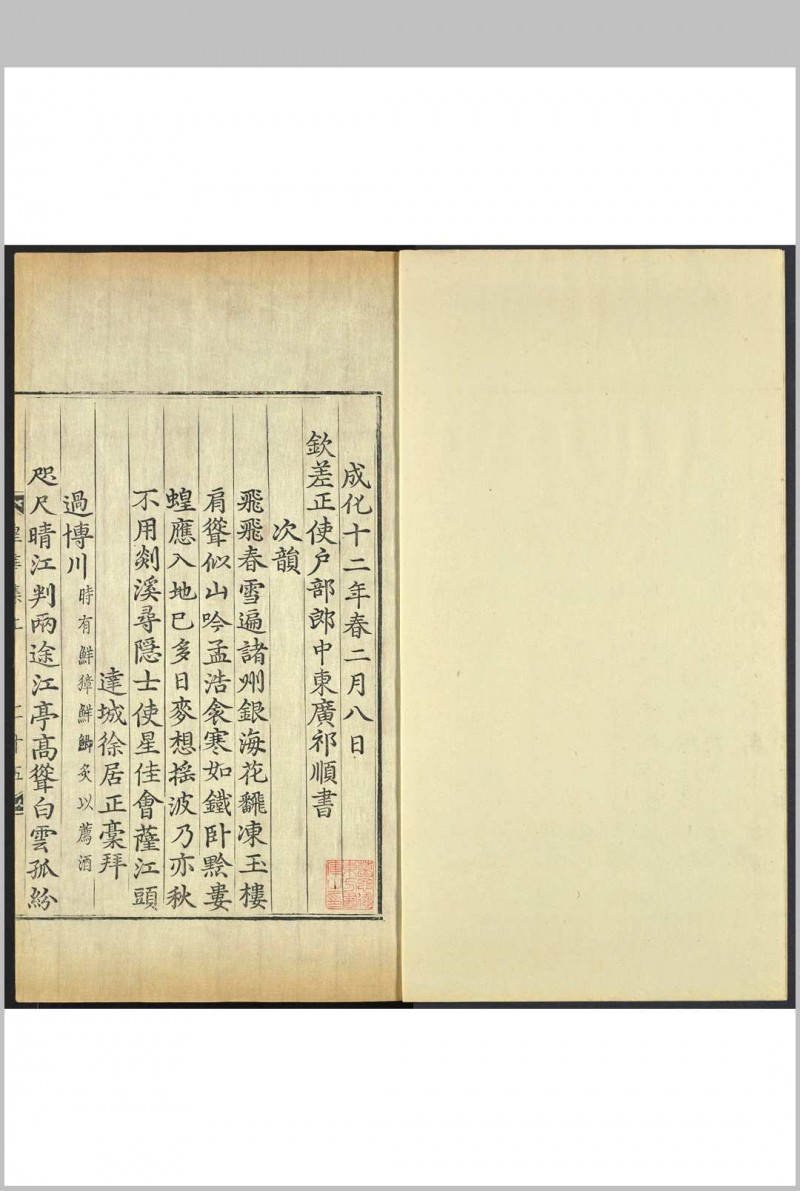 成化十二年春二月八日
欽差正使户部郎中東廣祁順書
次韻
飛飛春雪遍諸州銀海花飜凍玉樓
肩聳似山吟孟浩衾寒如鐵卧黔婁
蝗應入地已多日麥想摇波乃亦秋
不用剡溪尋隱士使星佳會薩江頭
達城徐居正稾拜
過博川時有鮮獐鮮鯽炙以薦酒
咫尺晴江判兩途江亭高聳白雲孤紛